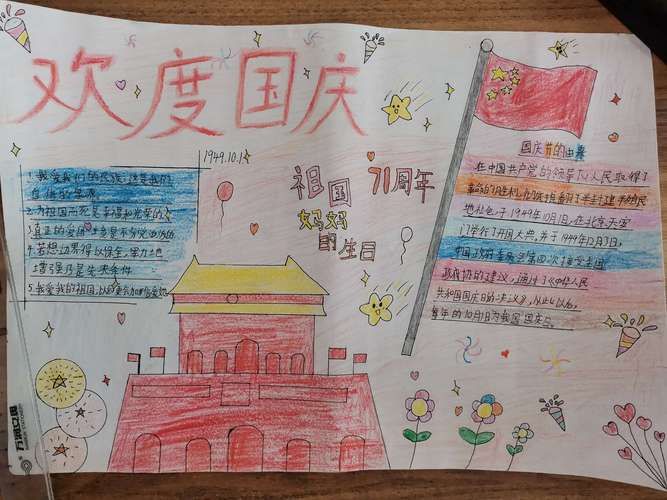 欢度国庆
1949.10.1
祖国
妈妈
的生日
71周年
1.我爱我们的民族,这是我的
2.为祖国而死是幸福和光荣的
3.真正的爱国
4.若想边界得以保全,军力地
增强乃是先决条件
5.我爱我的祖国
国庆节的由来
在中国共产党的领导下,人民取得了
革命的胜利
地社会,于1949年10月1日,在北京天安
门举行了开国大典,并于1949年12月3日,
中国政府委员会第四次接受全国
政协的建议,通过了《中华人民
共和国国庆日的决议》,从此以后,
每年的10月1日为我国国庆日。